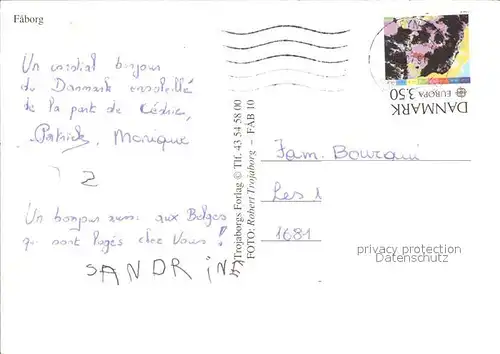 Fåborg
Un cordial bonjour
du Danmark ensoleillé
de la part de Cédric,
Patrick, Monique
2
Un bonjour aussi aux Belges
qui sont logés chez Vous!
SANDRiN
Trojaborgs Forlag © Tlf. 43 54 58 00
FOTO: Robert Trojaborg – FÅB 10
DANMARK
EUROPA 3.50
Fam. Bourqui
Les
1681
privacy protection
Datenschutz